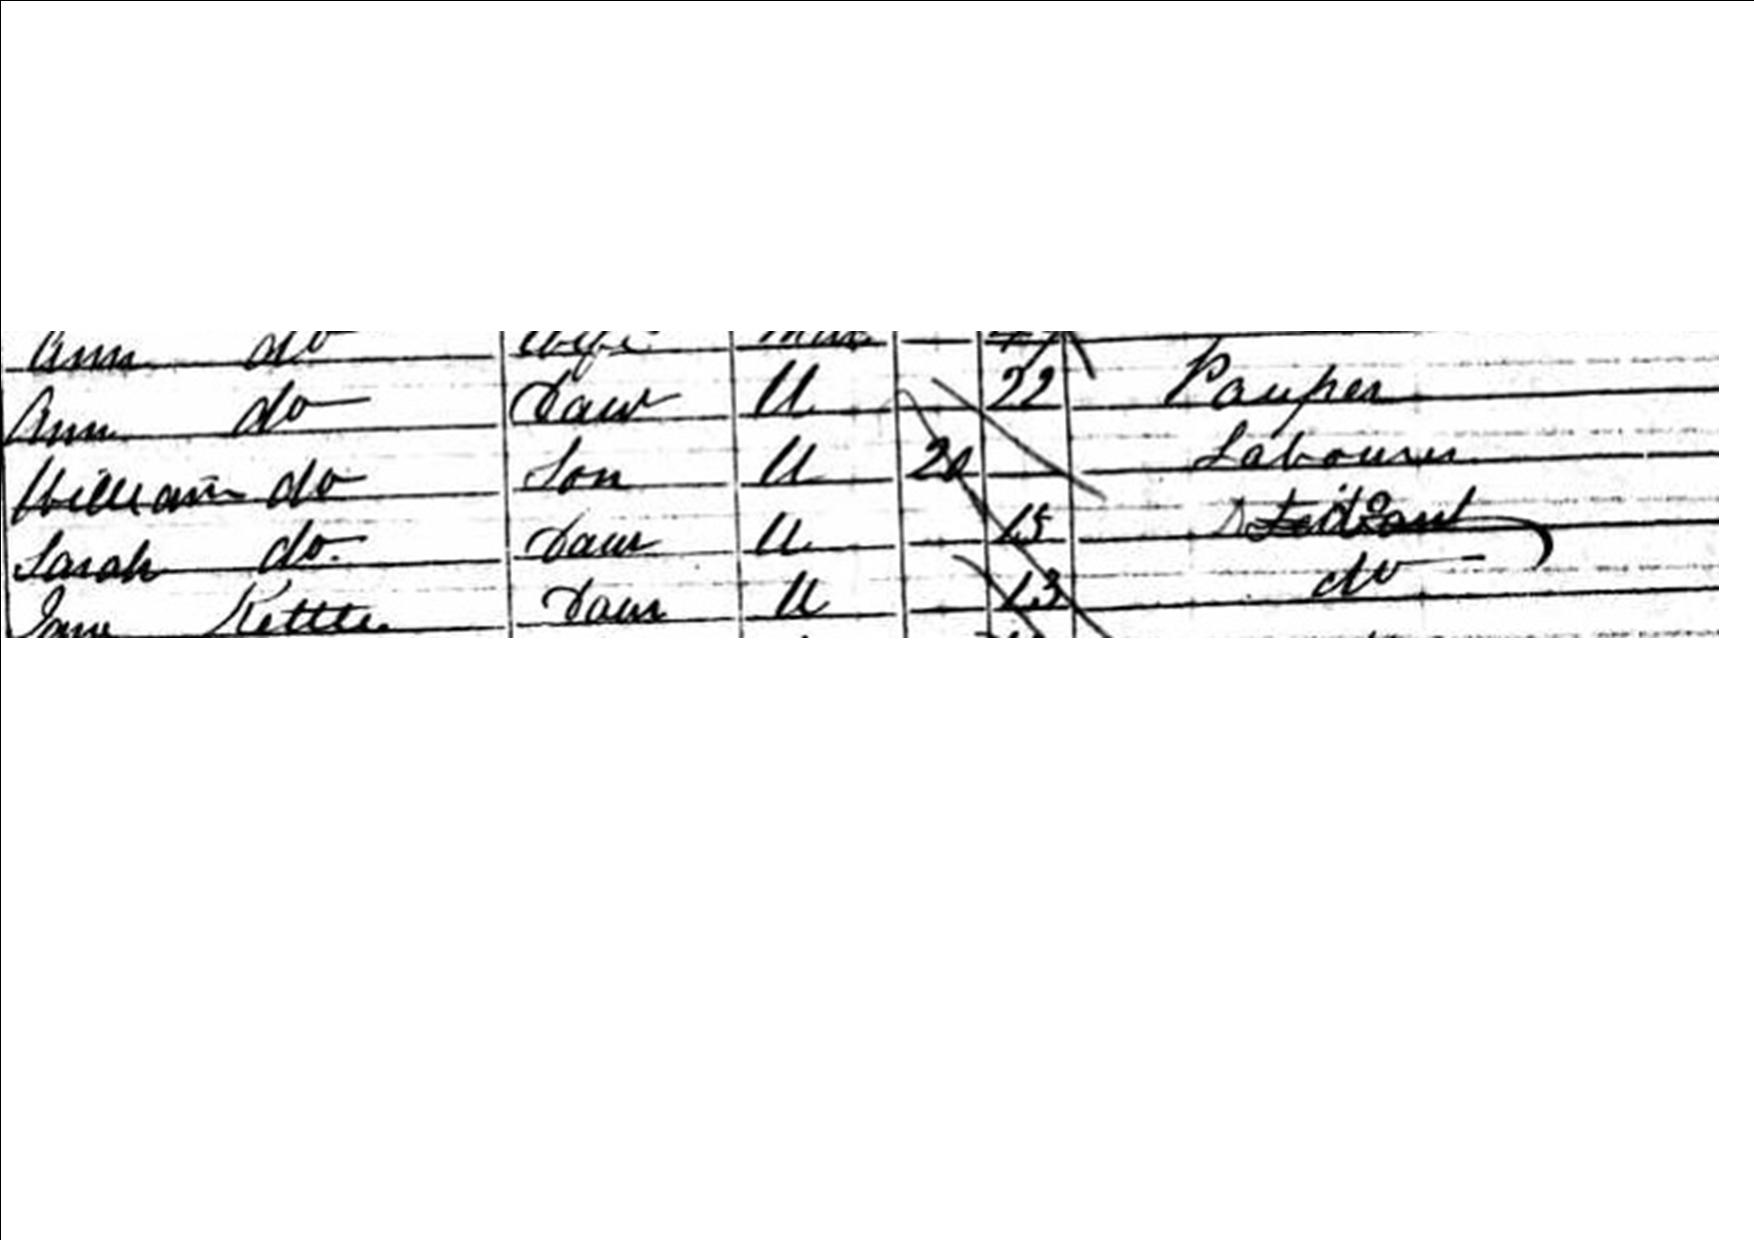 Ann do Wife Mar 47
Ann do Daur U 22 Pauper
William do Son U 20 Labourer
Sarah do. Daur U 15
Jane Kettle Daur U 13 do